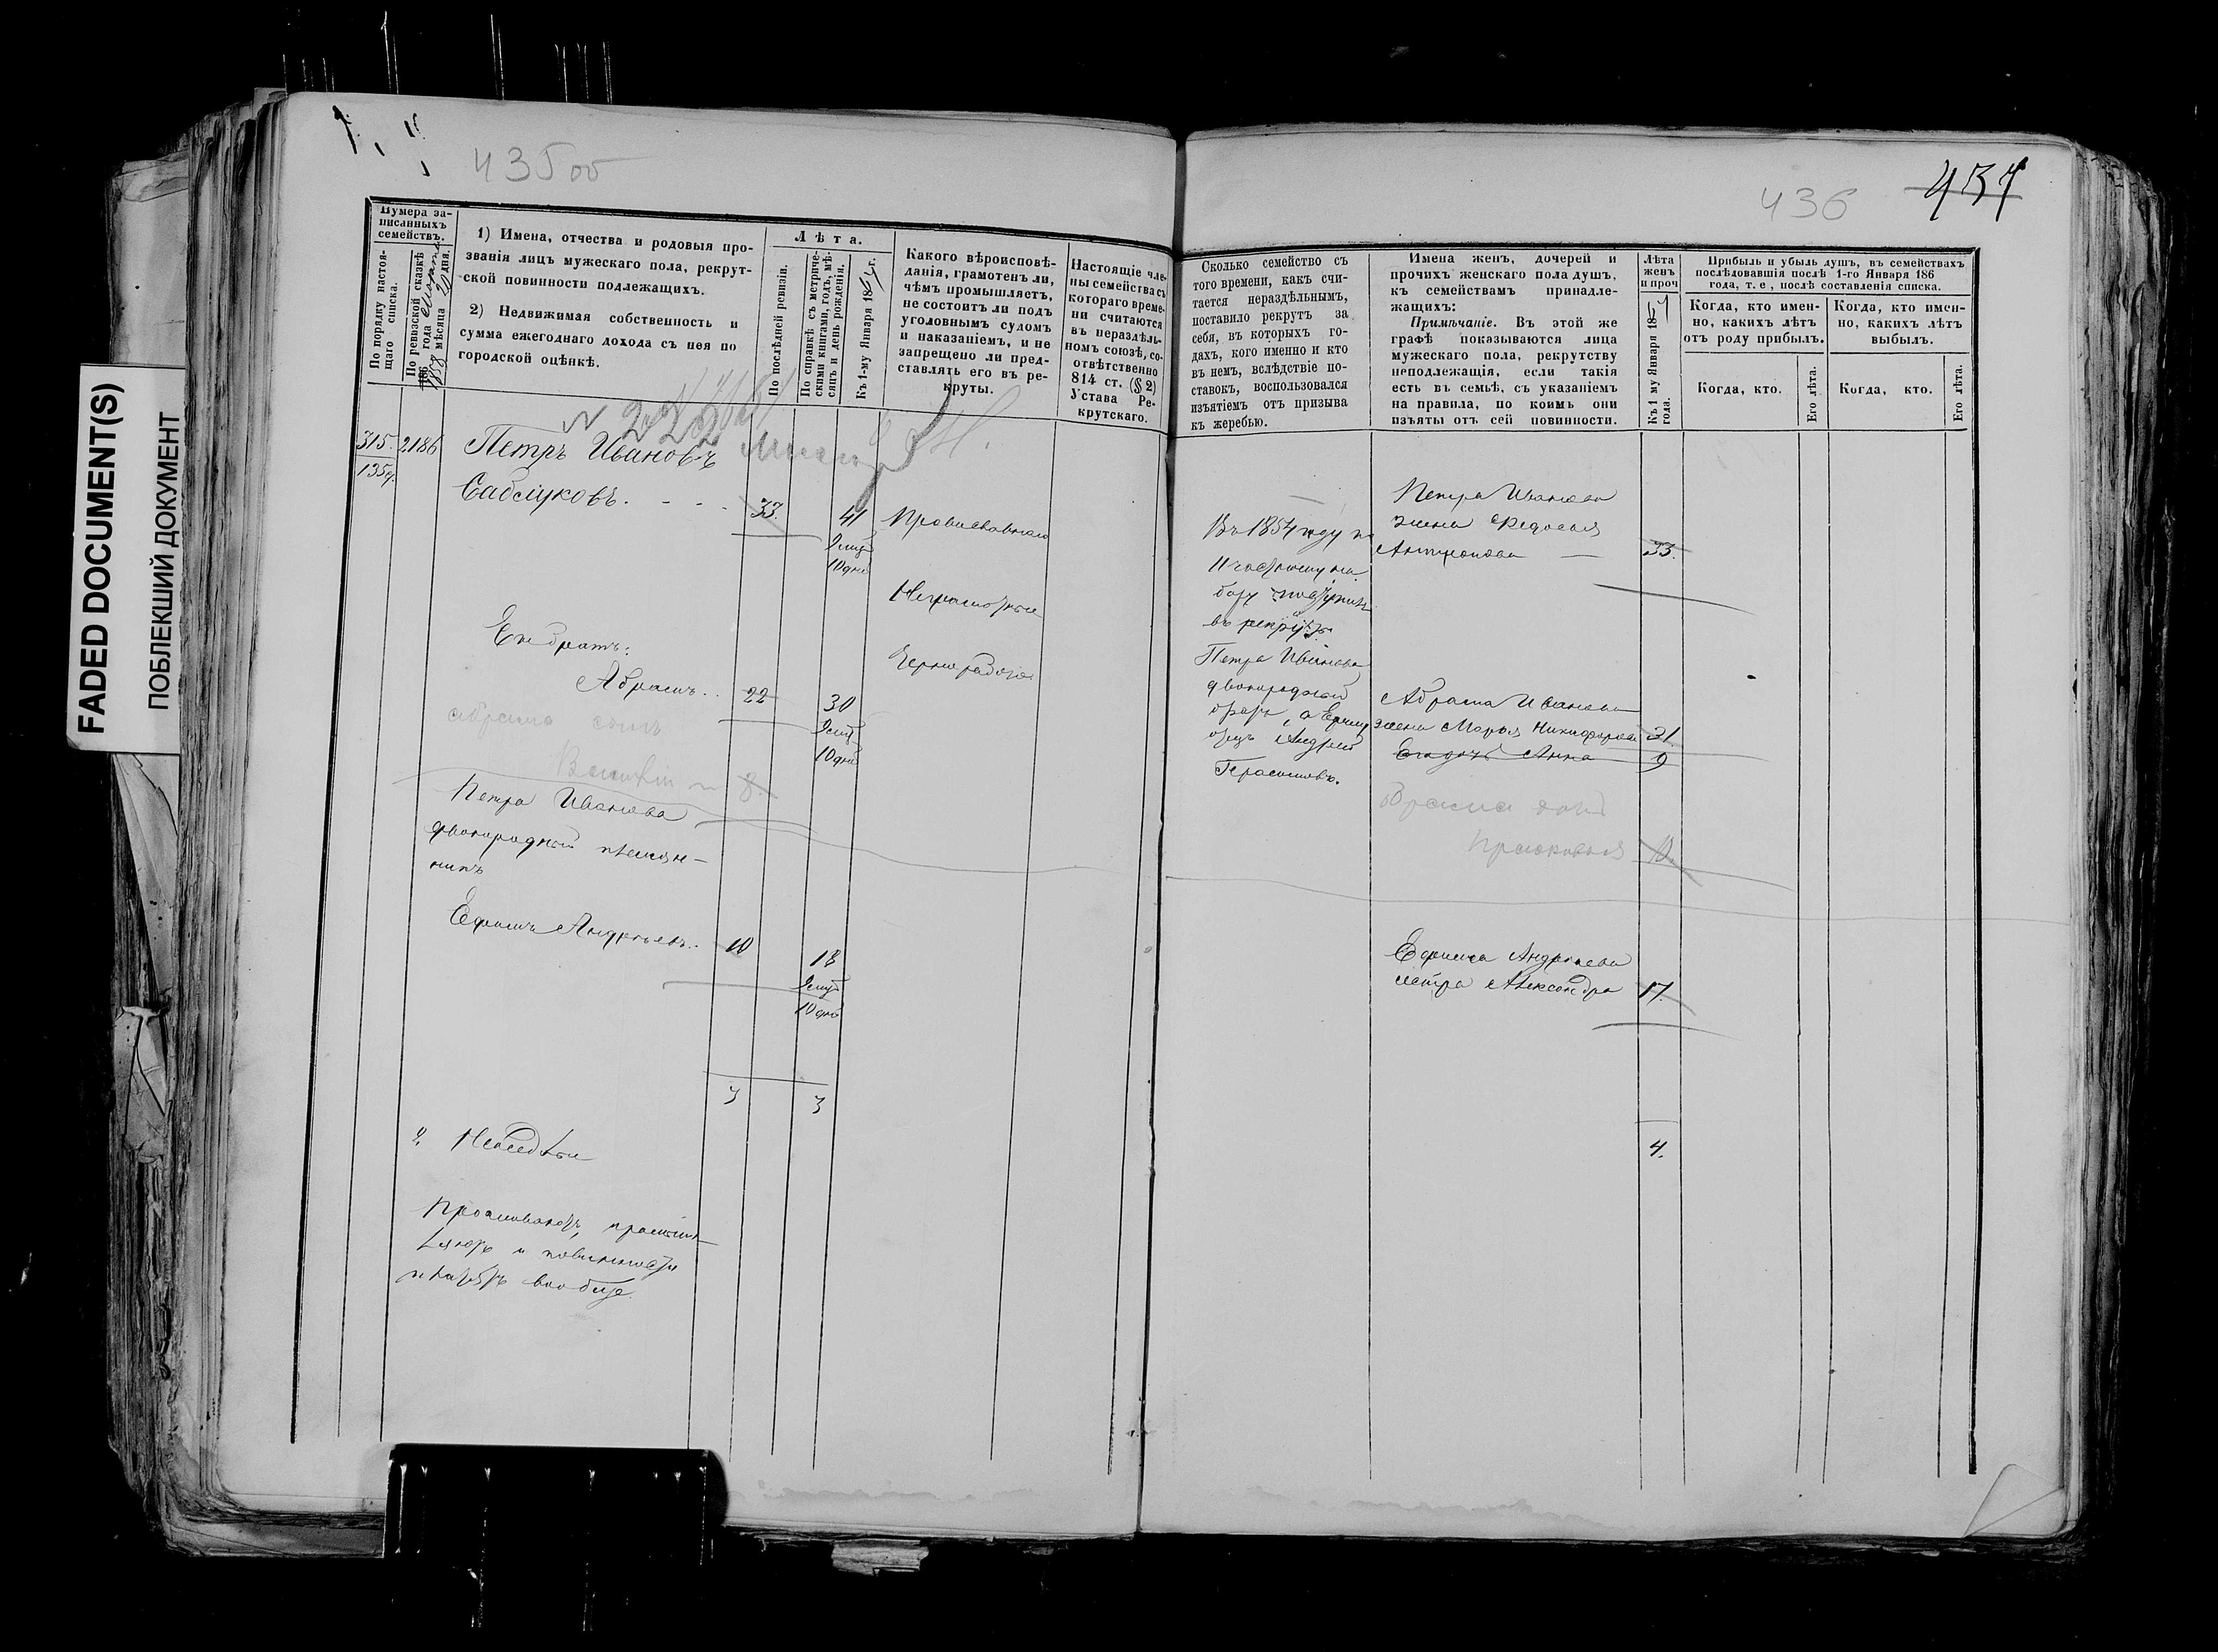 FADED DOCUMENT(S)
ПОБЛЕКШИЙ ДОКУМЕНТ
435 об
Нумера за-
писанныхъ
семействъ.
По порядку настоя-
щаго списка.
По ревизской сказкѣ
1858 года
мѣсяца дня.
1) Имена, отчества и родовыя про-
званія лицъ мужескаго пола, рекрут-
ской повинности подлежащихъ.
2) Недвижимая собственность и
сумма ежегоднаго дохода съ нея по
городской оцѣнкѣ.
Лѣта.
По послѣдней ревизіи.
По справкѣ съ метриче-
скими книгами, годъ, мѣ-
сяцъ и день рожденія.
Къ 1-му Января 186 г.
Какого вѣроисповѣ-
данія, грамотенъ ли,
чѣмъ промышляетъ,
не состоитъ ли подъ
уголовнымъ судомъ
и наказаніемъ, и не
запрещено ли пред-
ставлять его въ ре-
круты.
Настоящіе чле-
ны семейства съ
котораго време-
ни считаются
въ нераздѣль-
номъ союзѣ, со-
отвѣтственно
814 ст. (§ 2)
Устава Ре-
крутскаго.
315. 2186 Петръ Ивановъ
1359.
Саблуковъ. 33. 41 Православнаго
9 мцъ
10 дне
Неграмотные
Его братъ:
Чернорабочіе
Абрамъ.. 22 30
9 мцъ
10 дне
абрама сынъ
Василій 8.
Петра Иванова
двоюродный племян-
никъ
Ефимъ Андреевъ.. 10 18
9 мцъ
10 дне
3 3
2,
Проживаютъ,
и повинности
вообще.
436 437
Сколько семейство съ
того времени, какъ счи-
тается нераздѣльнымъ,
поставило рекрутъ за
себя, въ которыхъ го-
дахъ, кого именно и кто
въ немъ, вслѣдствіе по-
ставокъ, воспользовался
изъятіемъ отъ призыва
къ жеребью.
Имена женъ, дочерей и
прочихъ женскаго пола душъ,
къ семействамъ принадле-
жащихъ:
Примѣчаніе. Въ этой же
графѣ показываются лица
мужескаго пола, рекрутству
неподлежащія, если такія
есть въ семьѣ, съ указаніемъ
на правила, по коимъ они
изъяты отъ сей повинности.
Лѣта
женъ
и проч
Къ 1 му Января 186
года.
Прибыль и убыль душъ, въ семействахъ
послѣдовавшія послѣ 1-го Января 186
года, т. е, послѣ составленія списка.
Когда, кто имен-
но, какихъ лѣтъ
отъ роду прибылъ.
Когда, кто имен-
но, какихъ лѣтъ
выбылъ.
Когда, кто.
Его лѣта.
Когда, кто.
Его лѣта.
Въ 1854 году по
11 частному на
бору поступилъ
въ рекруты
Петра Иванова
двоюродный
братъ, а Ефиму
отецъ Андрей
Герасимовъ.
Петра Иванова
жена Федосья
Антропова 33.
Абрама Иванова
жена Марья Никифорова 21.
Его дочь Анна 9
Абрама дочь
Прасковья 10
Ефима Андреева
сестра Александра 17.
4.